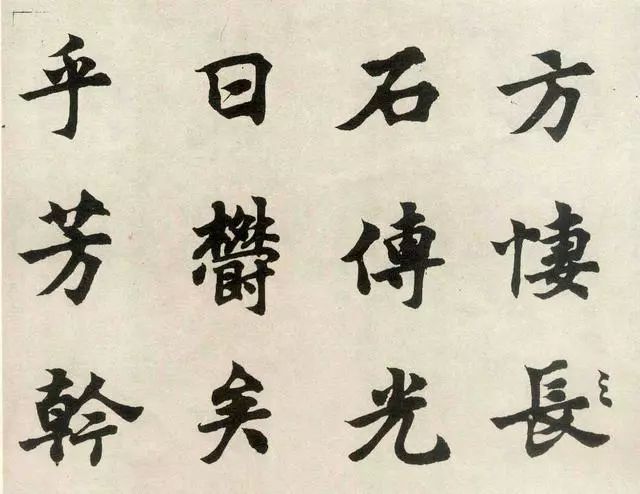 方悽長〻
石傳光
曰欝矣
乎芳幹